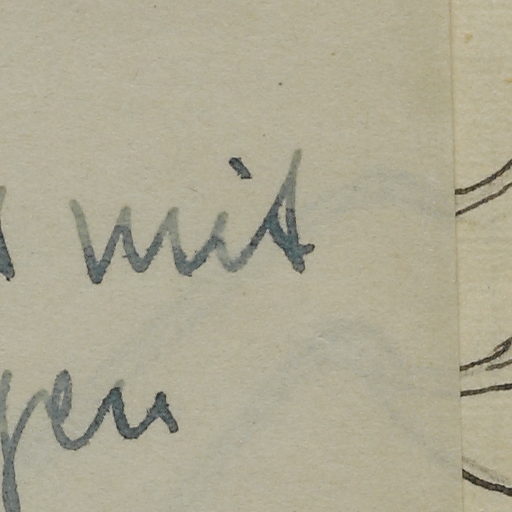 mit
gen